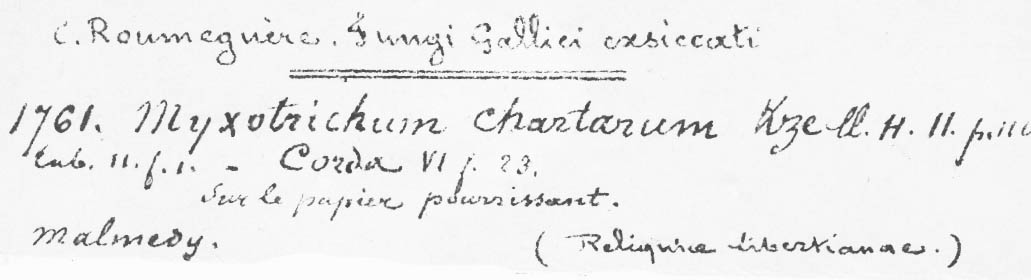 C. Roumeguère. Fungi Gallici exsiccati
1761. Myxotrichum chartarum Kze ll. H. II. p. 110
tab. II. f. 1. - Corda VI f. 23.
Sur le papier pourrissant.
Malmedy. (Reliquiae libertianae.)